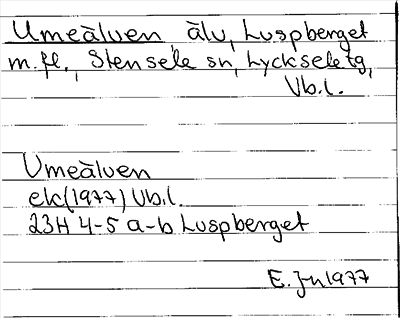 Umeälven, älv, Luspberget
m.fl., Stensele sn, Lycksele tg,
Vb.l.
Umeälven
ek(1977) Vb.l.
23H 4-5 a-b Luspberget
E. Jn 1977